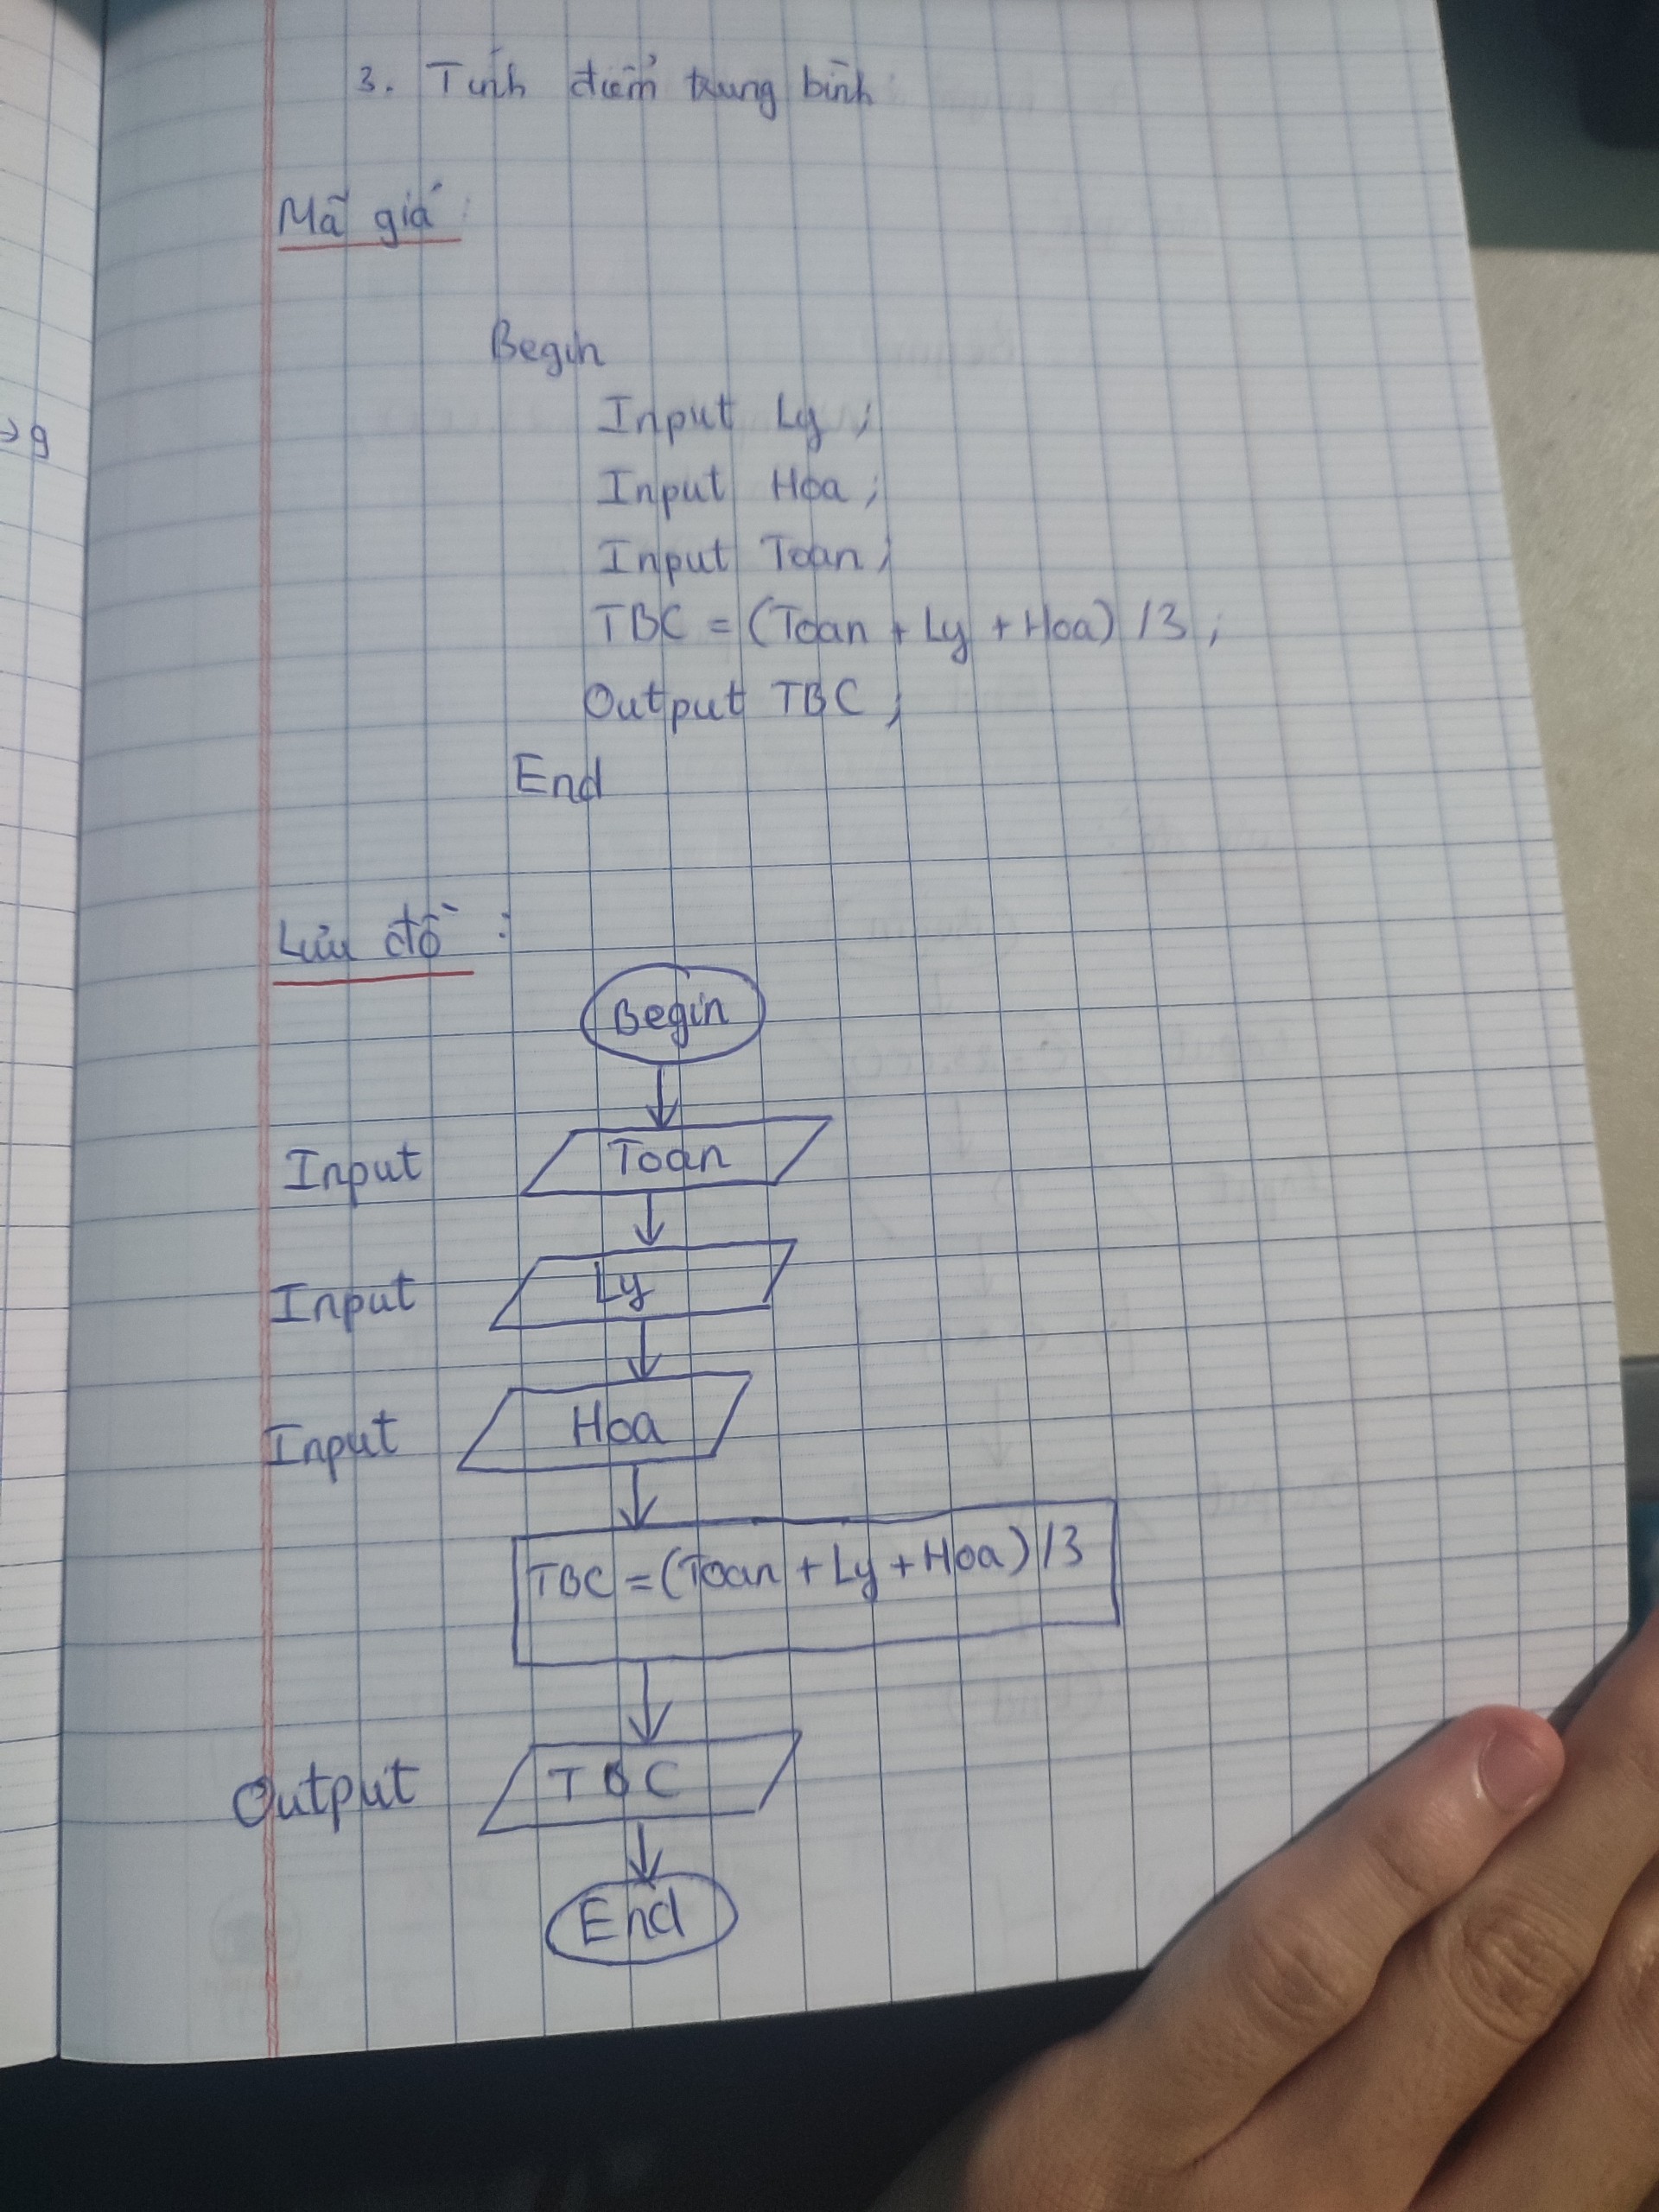 3. Tính điểm trung bình
Mã giả:
Begin
Input Ly;
Input Hoa;
Input Toan;
TBC = (Toan + Ly + Hoa) /3;
Output TBC;
End
→9
Lưu đồ:
Begin
Input Toan
Input Ly
Input Hoa
TBC = (Toan + Ly + Hoa) /3
Output TBC
End